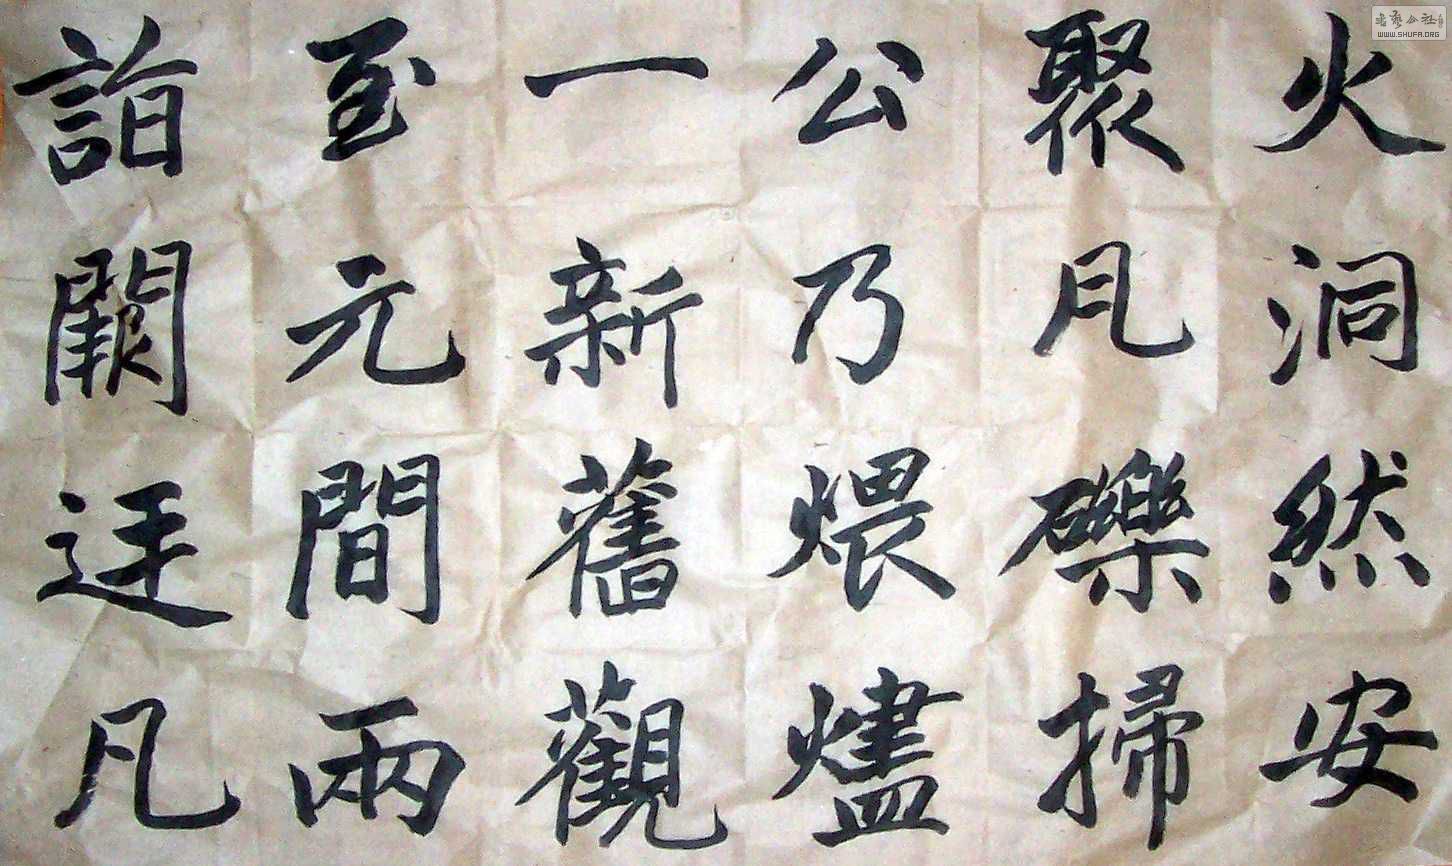 火洞然安
聚瓦礫掃
公乃煨燼
一新舊觀
至元間兩
詣闕廷凡
書藝公社
WWW.SHUFA.ORG